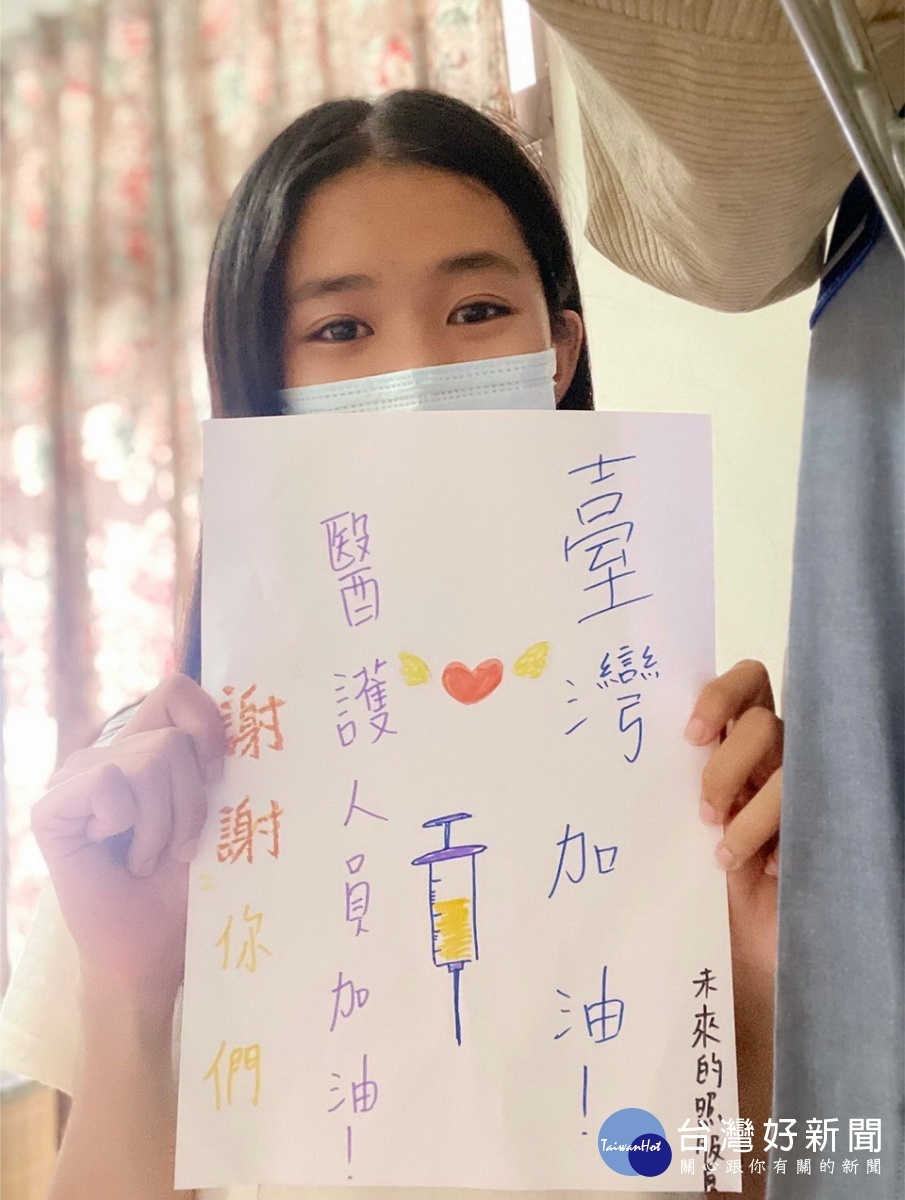 臺灣加油!
醫護人員加油!
謝謝你們
未來的照服員
TaiwanHot
台灣好新聞
關心跟你有關的新聞